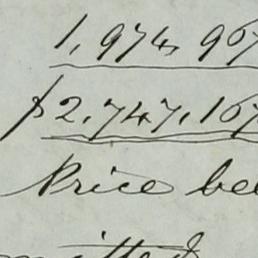 1,974,967
$2,747,167
Price be
mitted